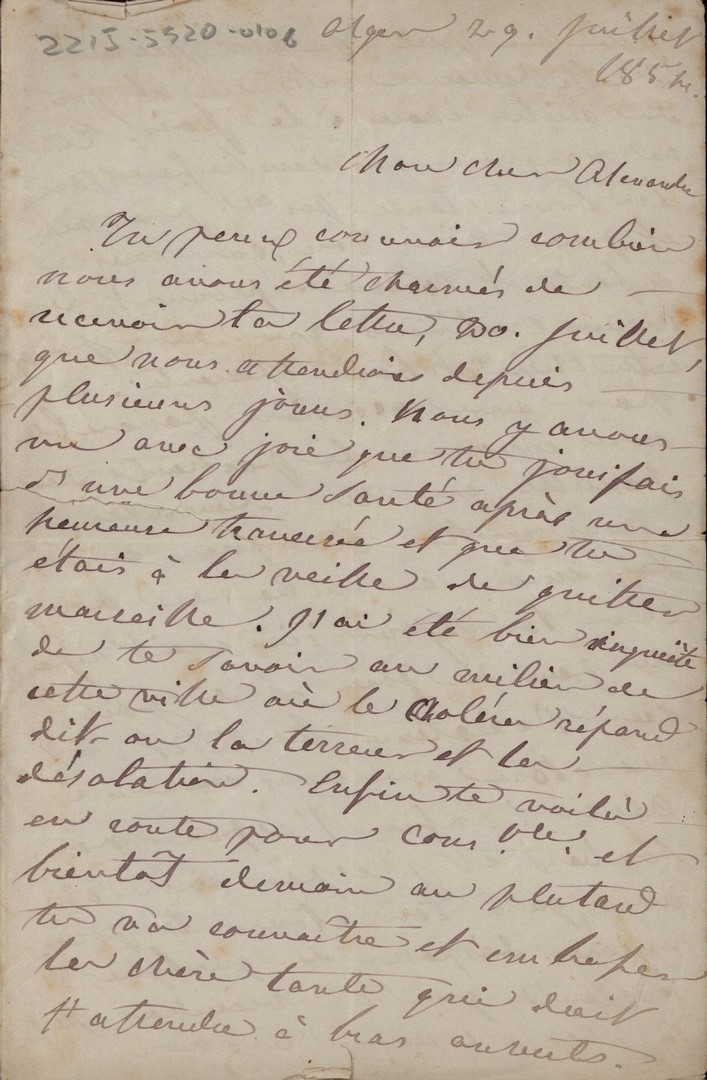 22IJ-5520-0106 Alger 29. Juillet
185
Mon cher Alexandre
Tu peux concevoir combien
nous avons été charmés de
recevoir ta lettre, 20. Juillet,
que nous attendions depuis
plusieurs jours. Nous y avons
vu avec joie que tu jouissais
d'une bonne santé après une
heureuse traversée et que tu
étais à la veille de quitter
marseille. J'ai été bien inquiète
de te savoir au milieu de
cette ville où le choléra répand
dit-on la terreur et la
désolation. Enfin te voilà
en route pour Cons.ple. et
bientôt demain au plutard
tu va connaître et embrasser
la chère tante qui doit
t'attendre à bras ouverts.